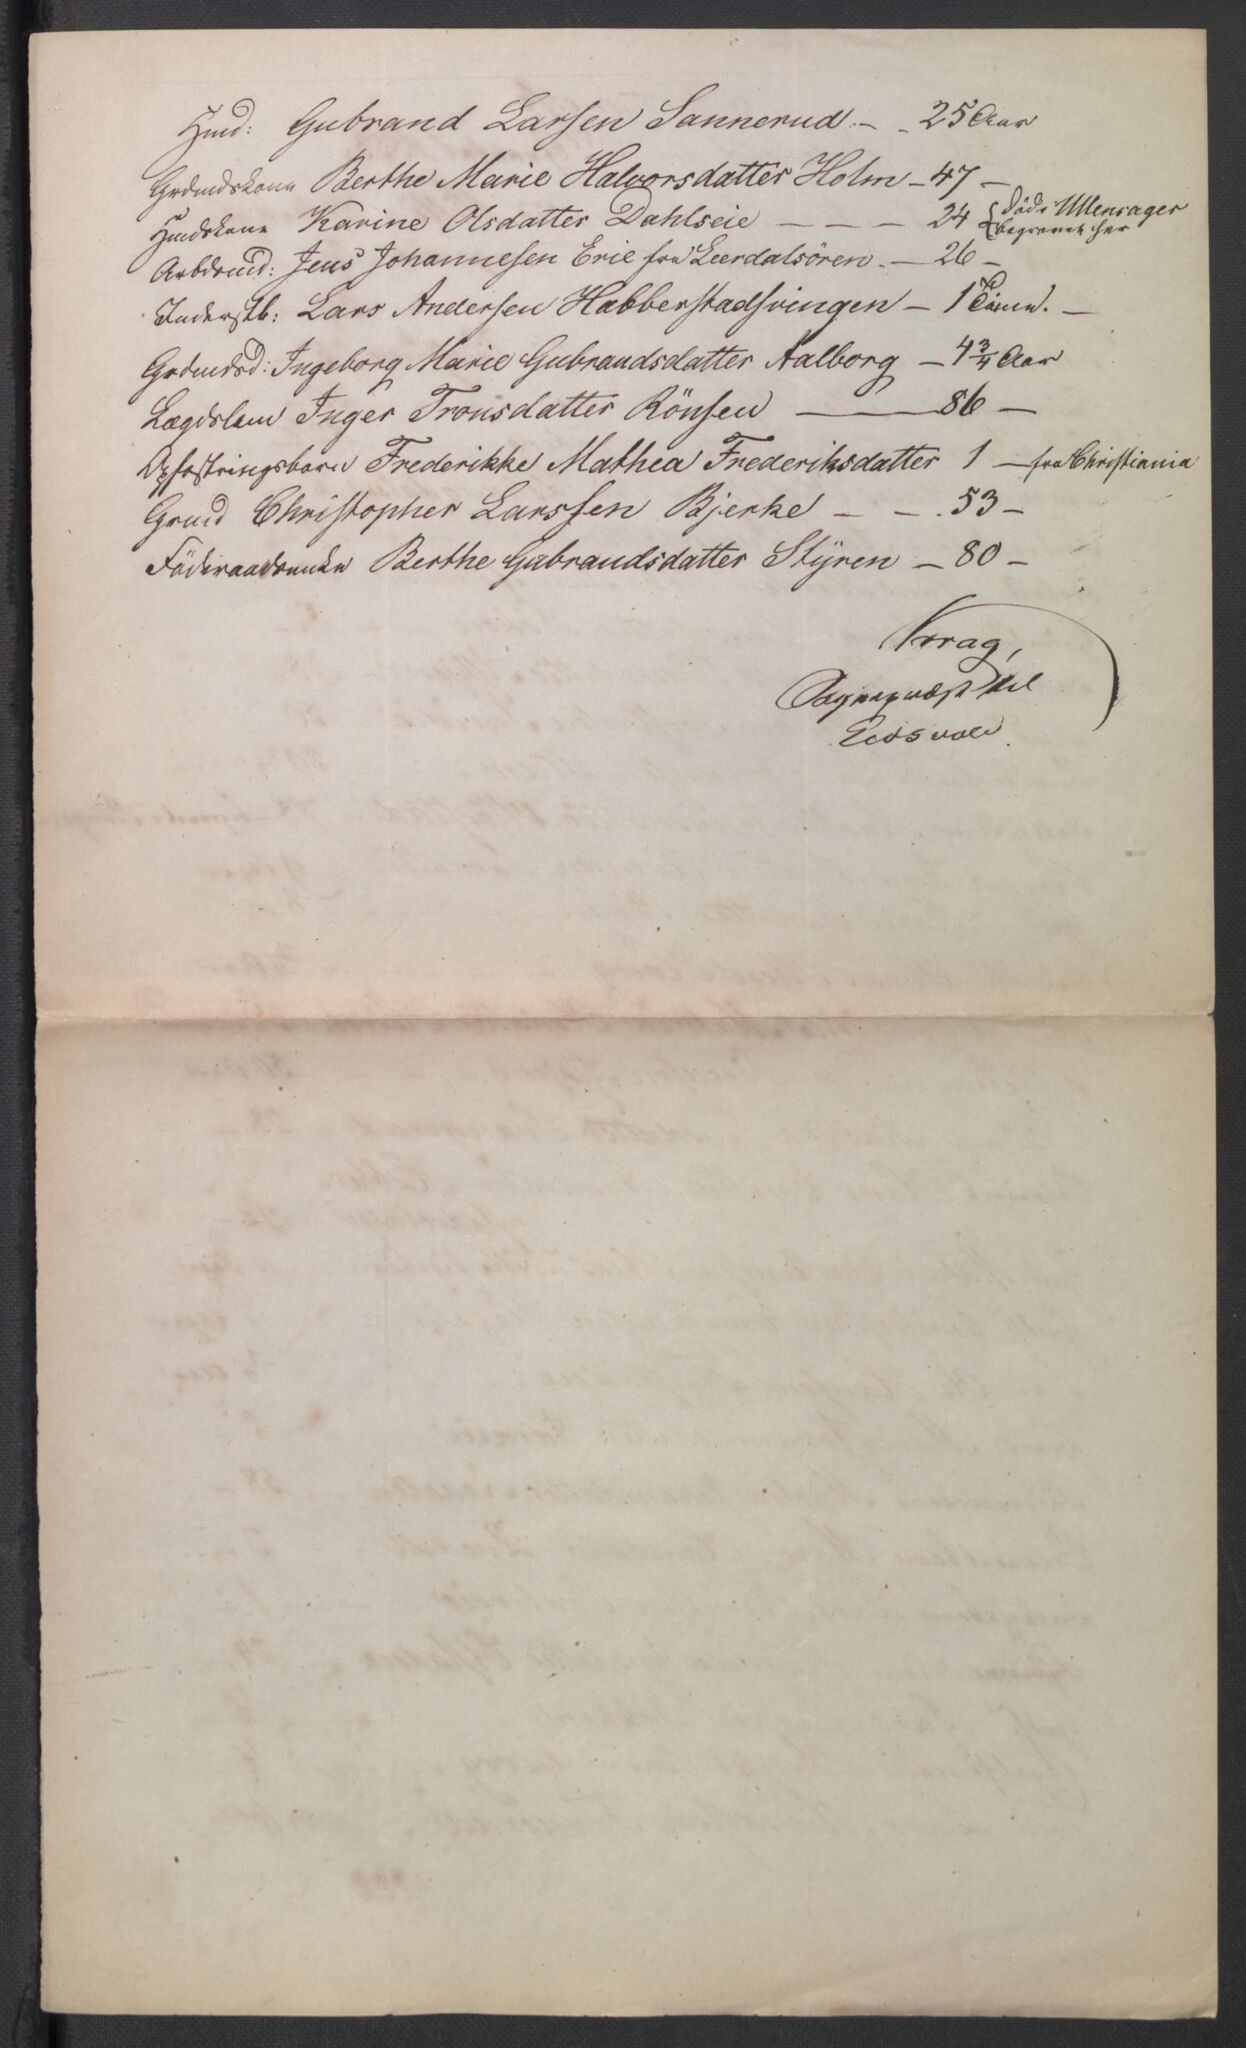 Hmd: Gubrand Larsen Sannerud. — - 25 Aar
Grdmdskone Berthe Marie Halvorsdatter Holm — 47 —
Hmdskone Karine Olsdatter Dahlseie — — — 24 { död i Ullensager
begravet her
Arbdsmd: Jens Johannesen Erie fra Leerdalsören. — 26 —
Inderstb: Lars Andersen Habberstadsvingen — 1 Time. —
Grdmdsd: Ingeborg Marie Gubrandsdatter Aalborg — 4 3/4 Aar
Lægdslem Inger Tronsdatter Rönsen — 86 —
Opfostringsbarn Frederikke Mathea Frederiksdatter 1 — fra Christiania
Grmd Christopher Larssen Bjerke — — . 53 —
Föderaadsenke Berthe Gubrandsdatter Styren — 80 —
Krag,
Sognepræst til
Eidsvold